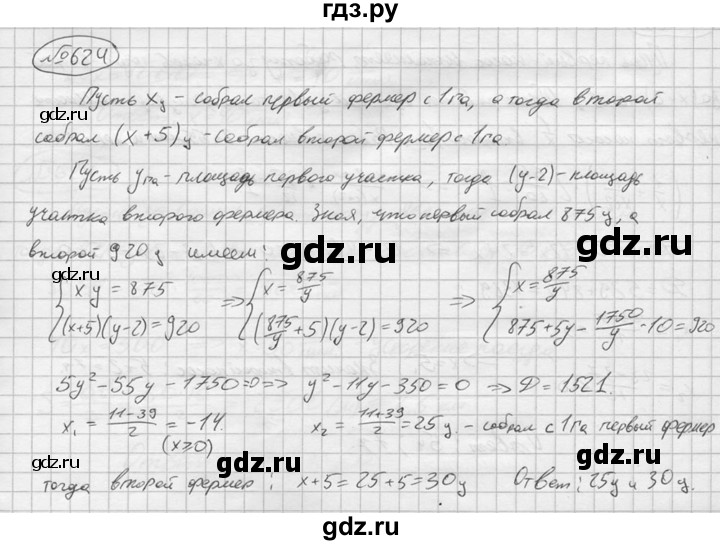 гдз.ру
№624
Пусть x ц - собрал первый фермер с 1 га, а тогда второй
gdz.ru gdz.ru
собрал (x+5) ц - собрал второй фермер с 1 га
Пусть y га - площадь первого участка, тогда (y-2) - площадь
участка второго фермера. Зная, что первый собрал 875 ц, а
gdz.ru
второй 920 ц имеем:
gdz.ru gdz.ru
{ xy = 875 => { x = 875/y => { x = 875/y
(x+5)(y-2) = 920 (875/y + 5)(y-2) = 920 875+5y - 1750/y - 10 = 920
gdz.ru
5y² - 55y - 1750 = 0 => y² - 11y - 350 = 0 => D = 1521.
x₁ = (11-39)/2 = -14. x₂ = (11+39)/2 = 25 ц. - собрал с 1 га первый фермер
(x≥0)
gdz.ru gdz.ru
тогда второй фермер: x+5 = 25+5 = 30 ц Ответ: 25 ц и 30 ц.
гдз.ру